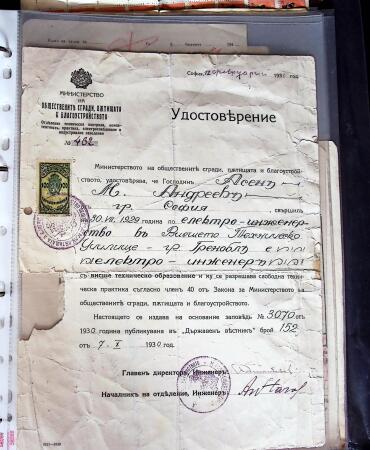 София, 12 февруарий 1930 год.
МИНИСТЕРСТВО
НА
ОБЩЕСТВЕНИТѢ СГРАДИ, ПѪТИЩАТА
И БЛАГОУСТРОЙСТВОТО
№ 462
Удостовѣрение
Министерството на обществените сгради, пѫтищата и благоустрой-
ството, удостовѣрява, че Господинъ Асенъ
М. Андреевъ
отъ гр. София свършилъ
30.VI.1929 година по електро-инженер-
ство въ Висшето Техническо
Училище - гр. Гренобълъ е
електро-инженеръ
съ висше техническо образование и му се разрешава свободна техни-
ческа практика съгласно членъ 40 отъ Закона за Министерството на
обществените сгради, пѫтищата и благоустройството.
Настоящето се издава на основание заповѣдь № 3070 отъ
1930 година публикувана въ „Държавенъ вѣстникъ" брой 152
отъ 7.X 1930 год.
Главенъ директоръ, Инженеръ:
Началникъ на отдѣление, Инженеръ: